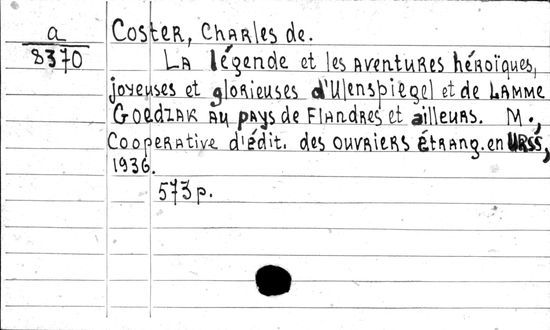 a
8370
Coster, Charles de.
La légende et les aventures héroïques,
joyeuses et glorieuses d'Ulenspiegel et de Lamme
Goedzak au pays de Flandres et ailleurs. M.,
Cooperative d'édit. des ouvriers étrang. en URSS,
1936.
573 p.